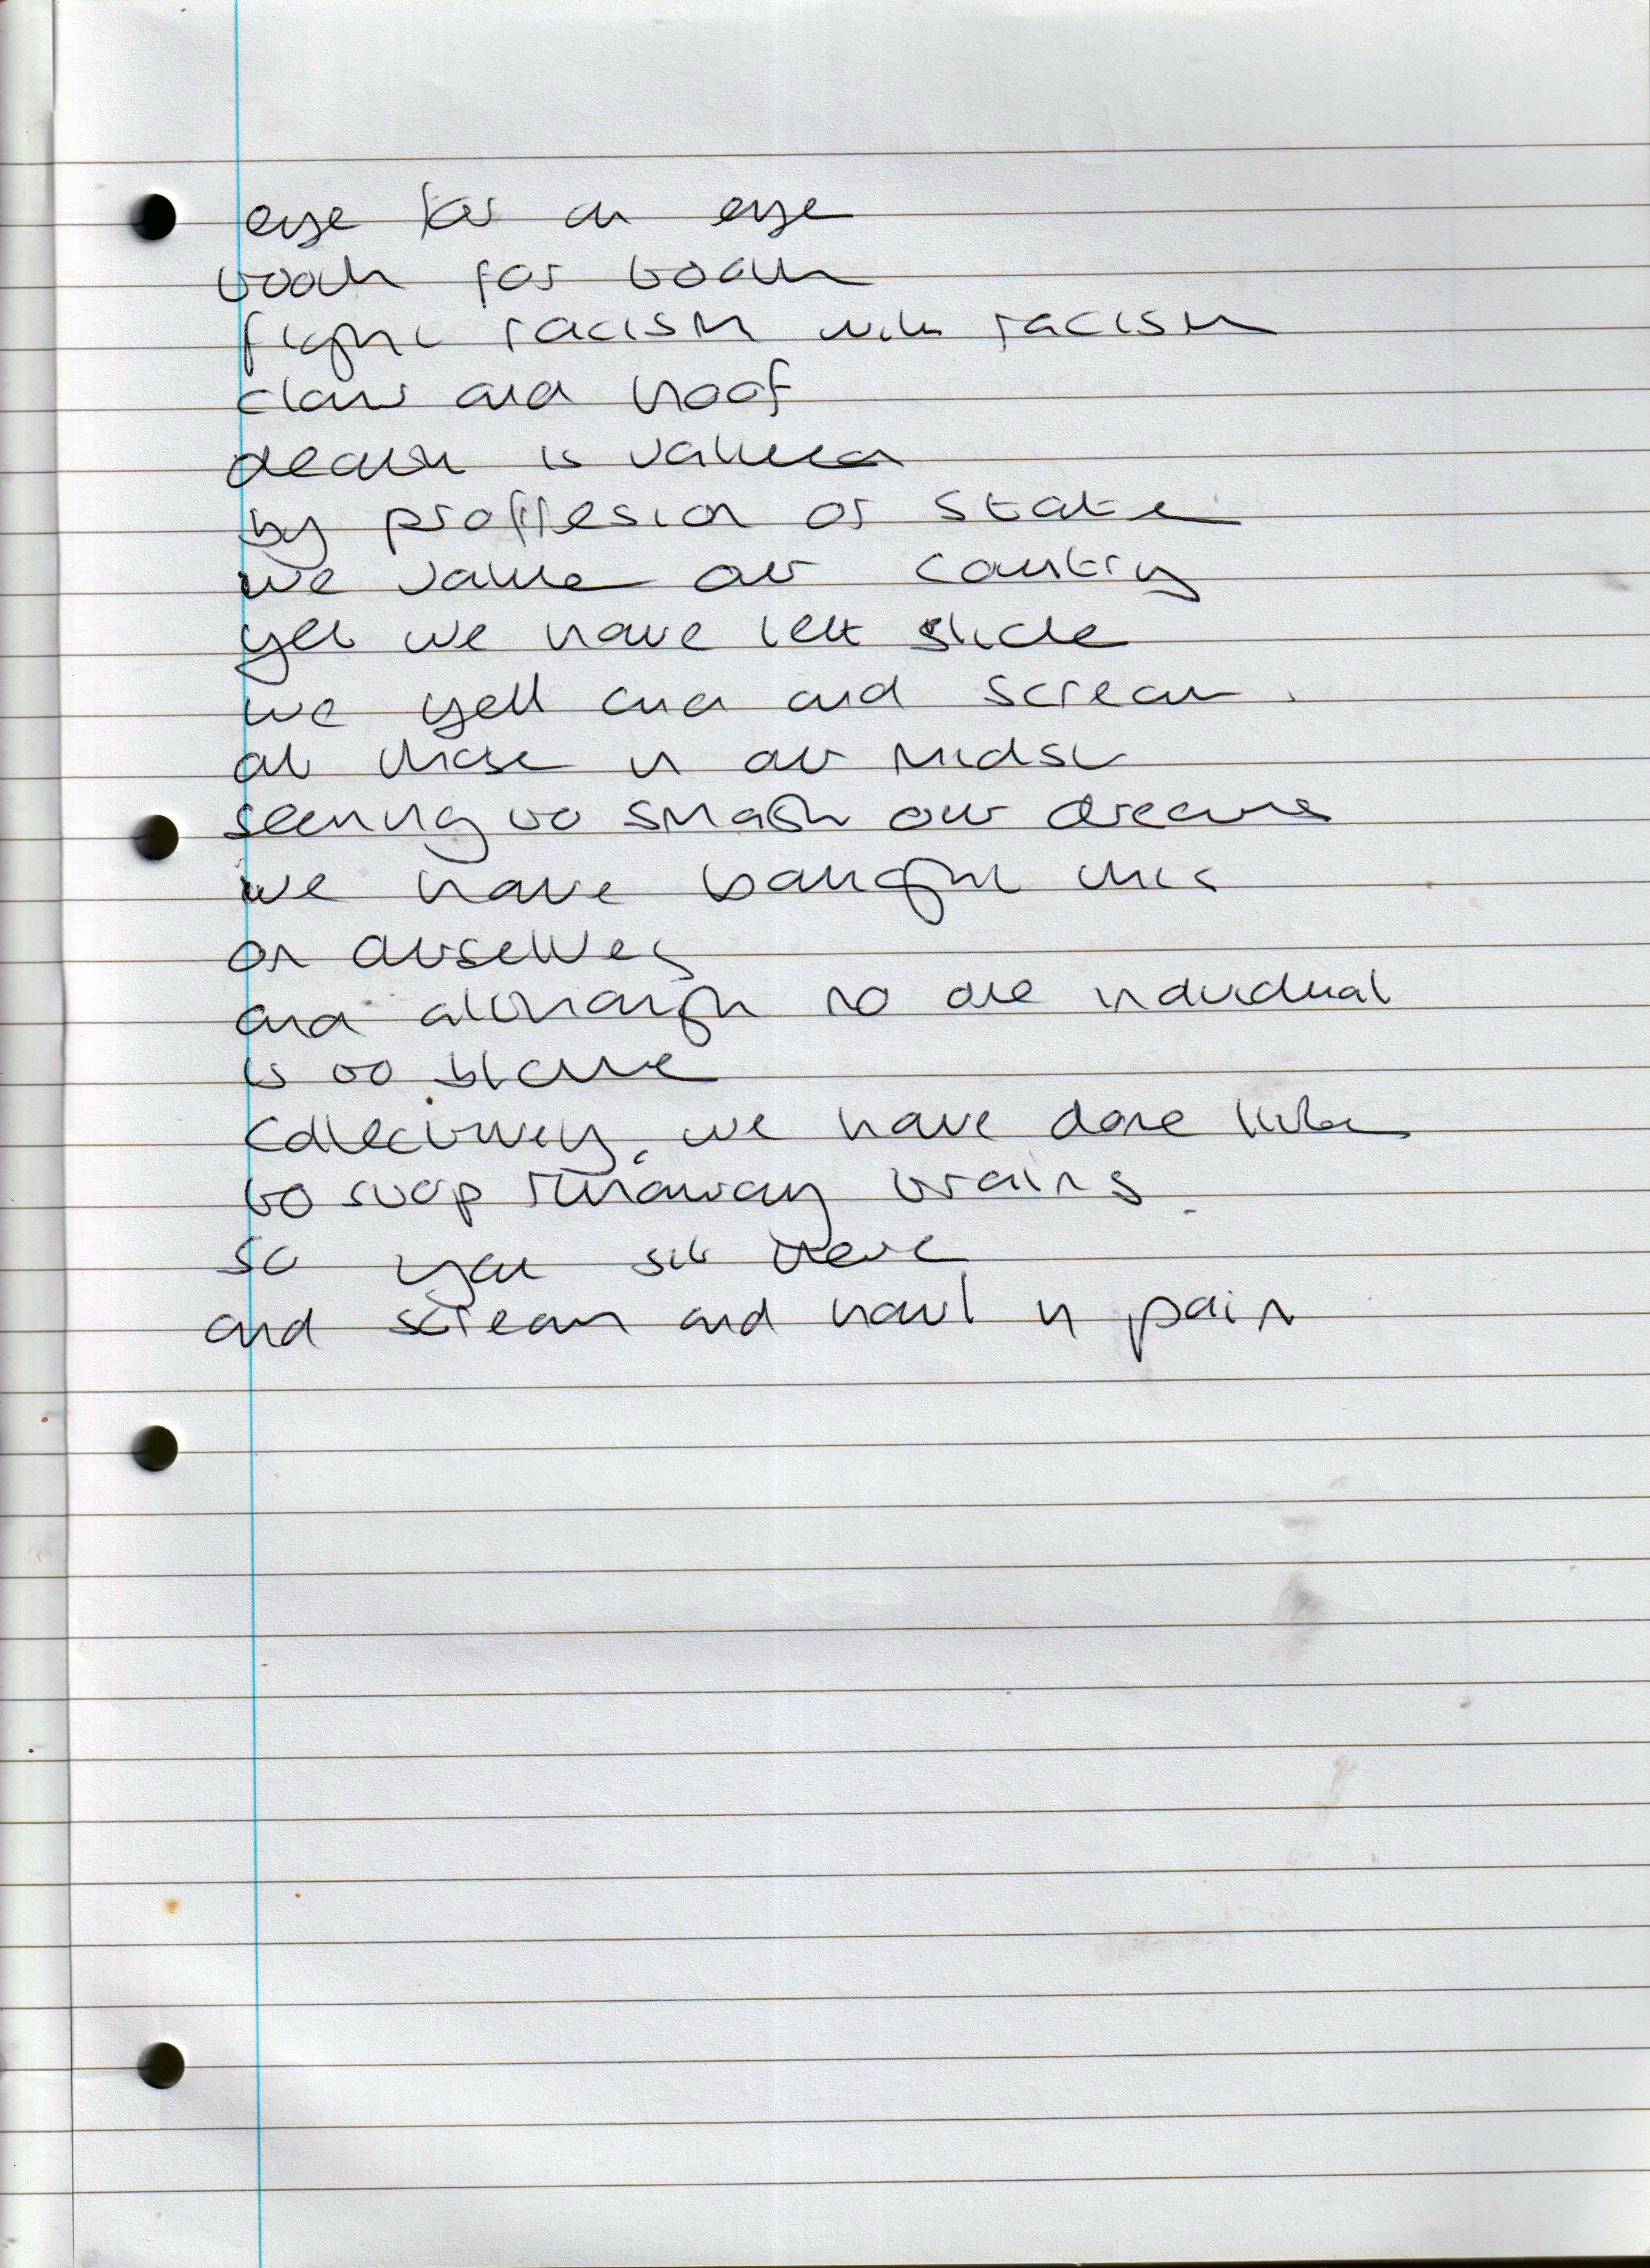 eye for an eye
tooth for tooth
fight racism with racism
claw and hoof
death is valued
by proffesion or state
we value our country
yet we have let slide
we yell and and scream
at those in our midst
seeming to smash our dreams
we have bought this
on ourselves
and although no one individual
is to blame
collectively, we have done little
to stop runaway trains
so you sit there
and scream and howl in pain